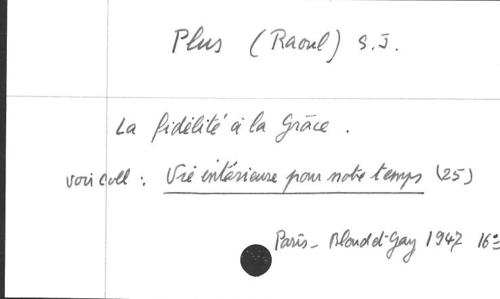 Plus (Raoul) S.J.
La fidélité à la Grâce.
voir coll : Vie intérieure pour notre temps (25)
Paris - Bloud et Gay 1947 16°